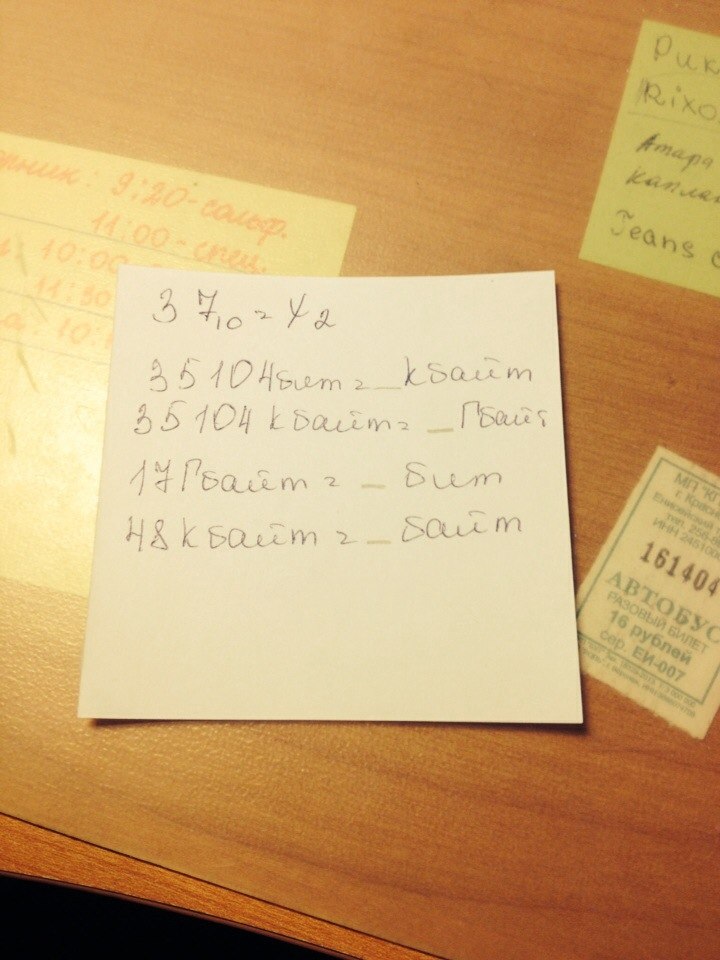 9:20-сольф.
11:00-спец.
10:00
11:30
10:
Rixo
Jeans
37₁₀ = Y₂
35104бит = _ Кбайт
35104 Кбайт = _ Гбайт
17Гбайт = _ бит
48Кбайт = _ байт
161404
АВТОБУС
РАЗОВЫЙ БИЛЕТ
16 рублей
сер. ЕИ-007